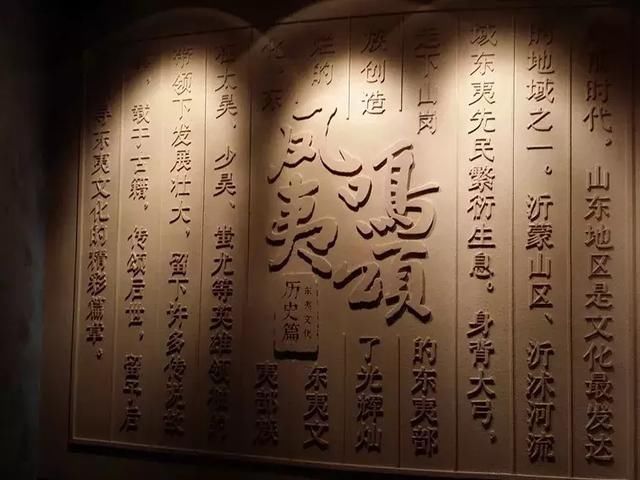 时代，山东地区是文化最发达
的地域之一。沂蒙山区、沂沭河流
域东夷先民繁衍生息。身背大弓、
走下山岗的东夷部
族创造了光辉灿
烂的东夷文
化。东夷部族
在太昊、少昊、蚩尤等英雄领袖的
带领下发展壮大，留下许多传说故
，载于古籍，传颂后世，留予后
寻东夷文化的精彩篇章。
鸣頌
夷
东夷文化
历史篇